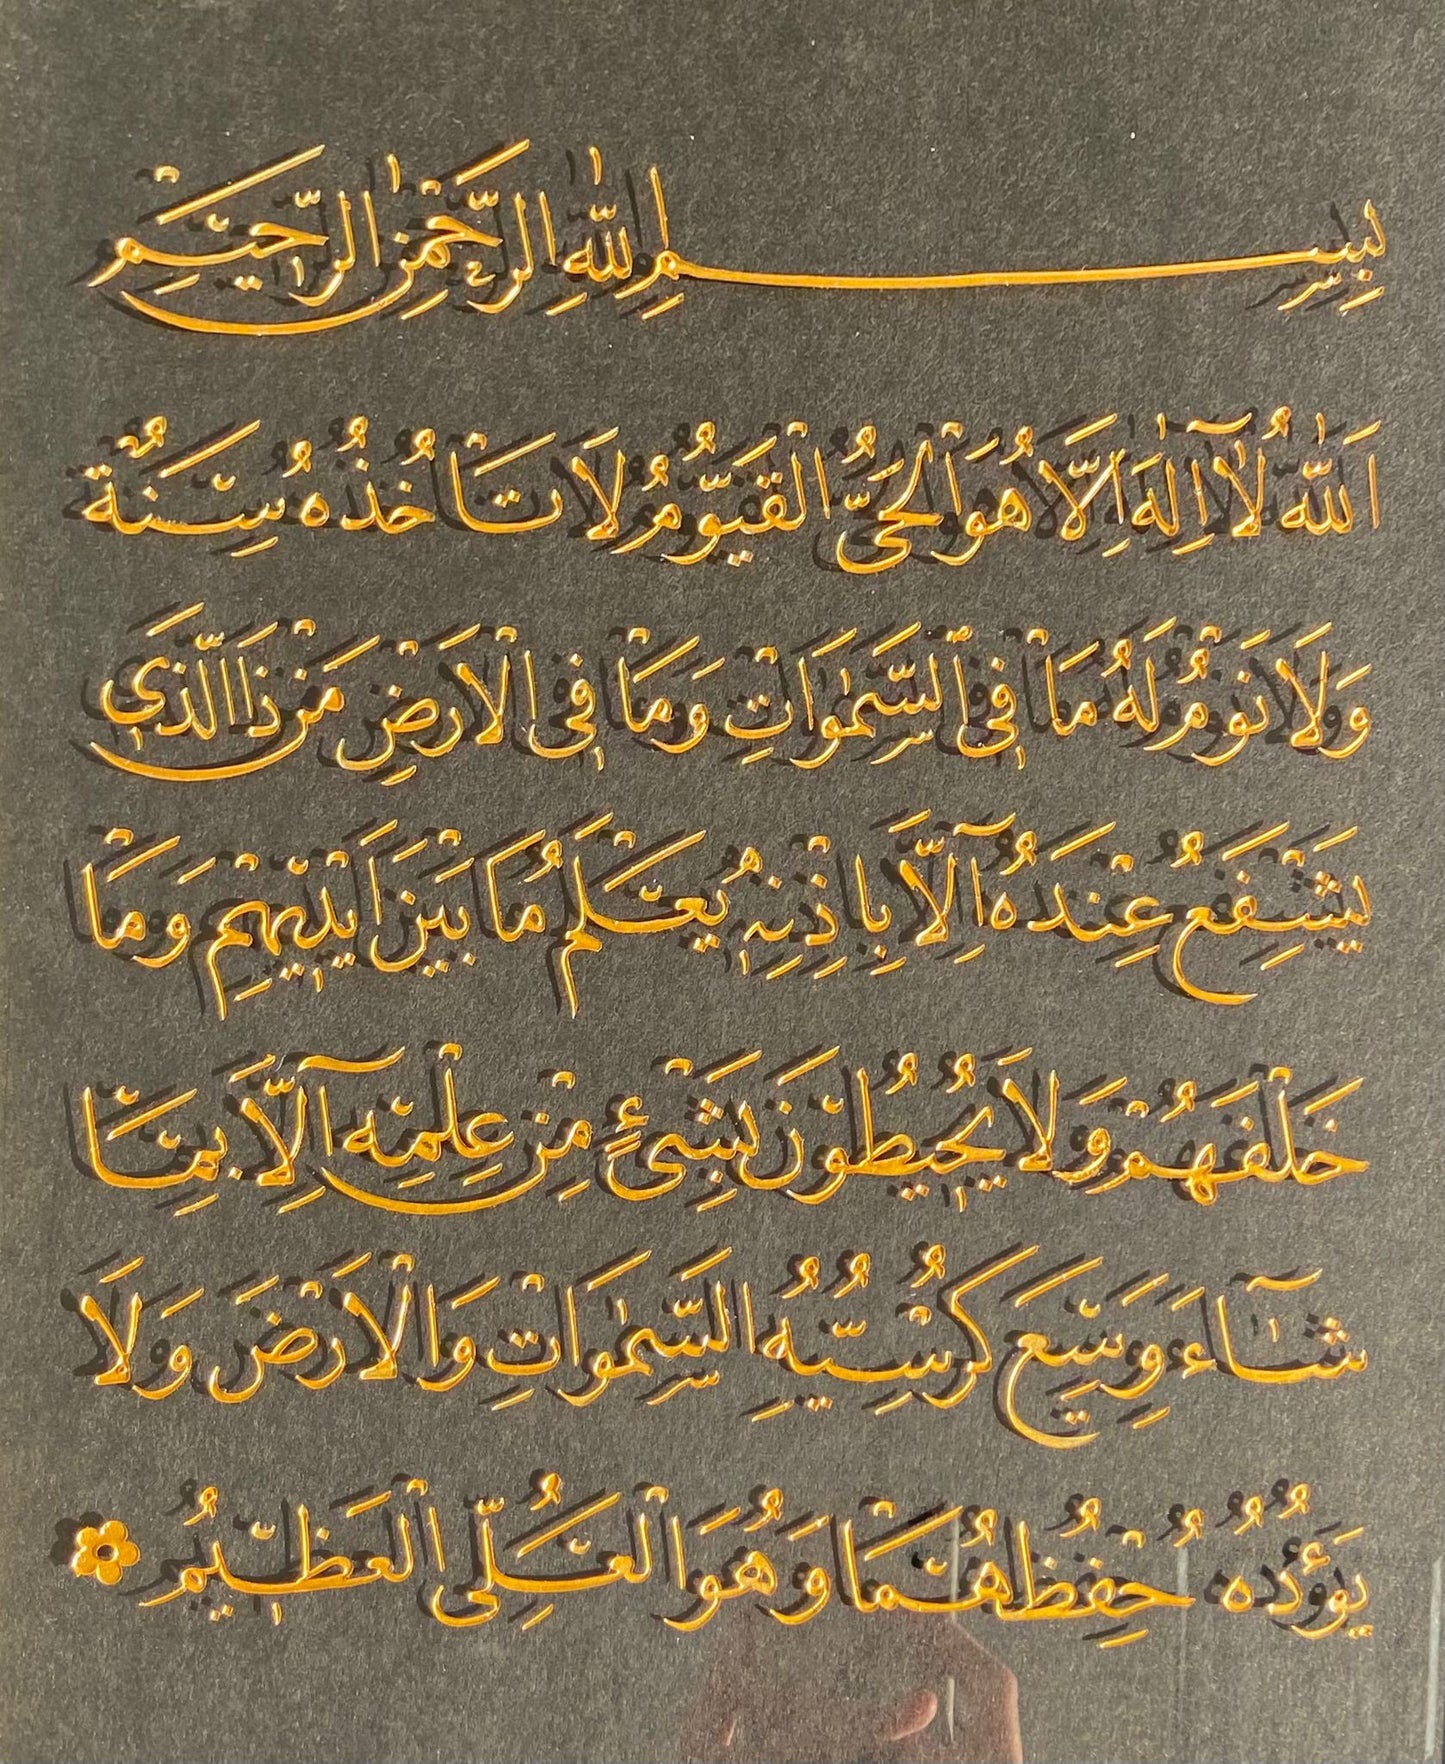 بِسْمِ اللّٰهِ الرَّحْمٰنِ الرَّحِيْمِ
اَللّٰهُ لَآ اِلٰهَ اِلَّا هُوَ اَلْحَيُّ الْقَيُّوْمُ لَا تَاْخُذُهُ سِنَةٌ
وَلَا نَوْمٌ لَهُ مَا فِي السَّمٰوَاتِ وَمَا فِي الْاَرْضِ مَنْ ذَا الَّذِي
يَشْفَعُ عِنْدَهُ آ اِلَّا بِاِذْنِهِ يَعْلَمُ مَا بَيْنَ اَيْدِيْهِمْ وَمَا
خَلْفَهُمْ وَلَا يُحِيْطُوْنَ بِشَيْئٍ مِنْ عِلْمِهِ آ اِلَّا بِمَا
شَآءَ وَسِعَ كُرْسِيُّهُ السَّمٰوَاتِ وَالْاَرْضَ وَلَا
يَؤُدُهُ حِفْظُهُمَا وَهُوَ الْعَلِيُّ الْعَظِيْمُ